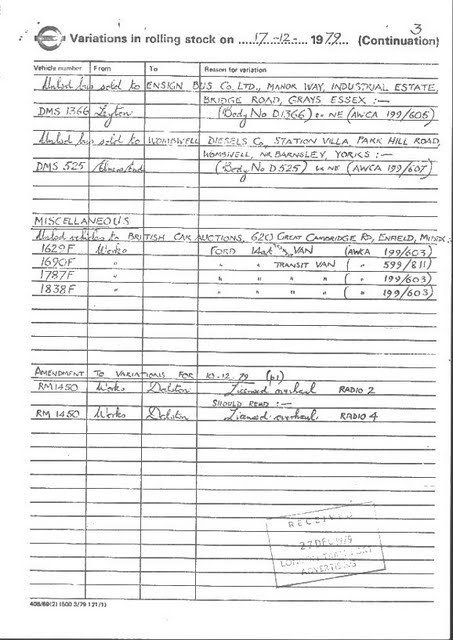 3
Variations in rolling stock on 17-12- 1979 (Continuation)
Vehicle number From To Reason for variation
Unlicd bus sold to ENSIGN BUS CO. LTD., MANOR WAY, INDUSTRIAL ESTATE,
BRIDGE ROAD, GRAYS ESSEX :—
DMS 1366 Leyton (Body No D1366) ex NE (AWCA 199/606)
Unlicd bus sold to WOMBWELL DIESELS Co, STATION VILLA, PARK HILL ROAD,
WOMBWELL, NR. BARNSLEY, YORKS :—
DMS 525 (Body No D525) ex NE (AWCA 199/607)
MISCELLANEOUS
Unlicd vehicles to BRITISH CAR AUCTIONS, 620 GREAT CAMBRIDGE RD, ENFIELD, MIDDX:-
1629F Works FORD VAN (AWCA 199/603)
1690F " " TRANSIT VAN ( " 599/811)
1787F " " " " " ( " 199/603)
1838F " " " " " ( " 199/603)
AMENDMENT TO VARIATIONS FOR 10-12-79 (p1)
RM1450 Works Dalston Licensed overhaul RADIO 2
SHOULD READ :—
RM 1450 Works Dalston Licensed overhaul RADIO 4
RECEIVED
27 DEC 1979
LONDON TRANSPORT
ADVERTISING